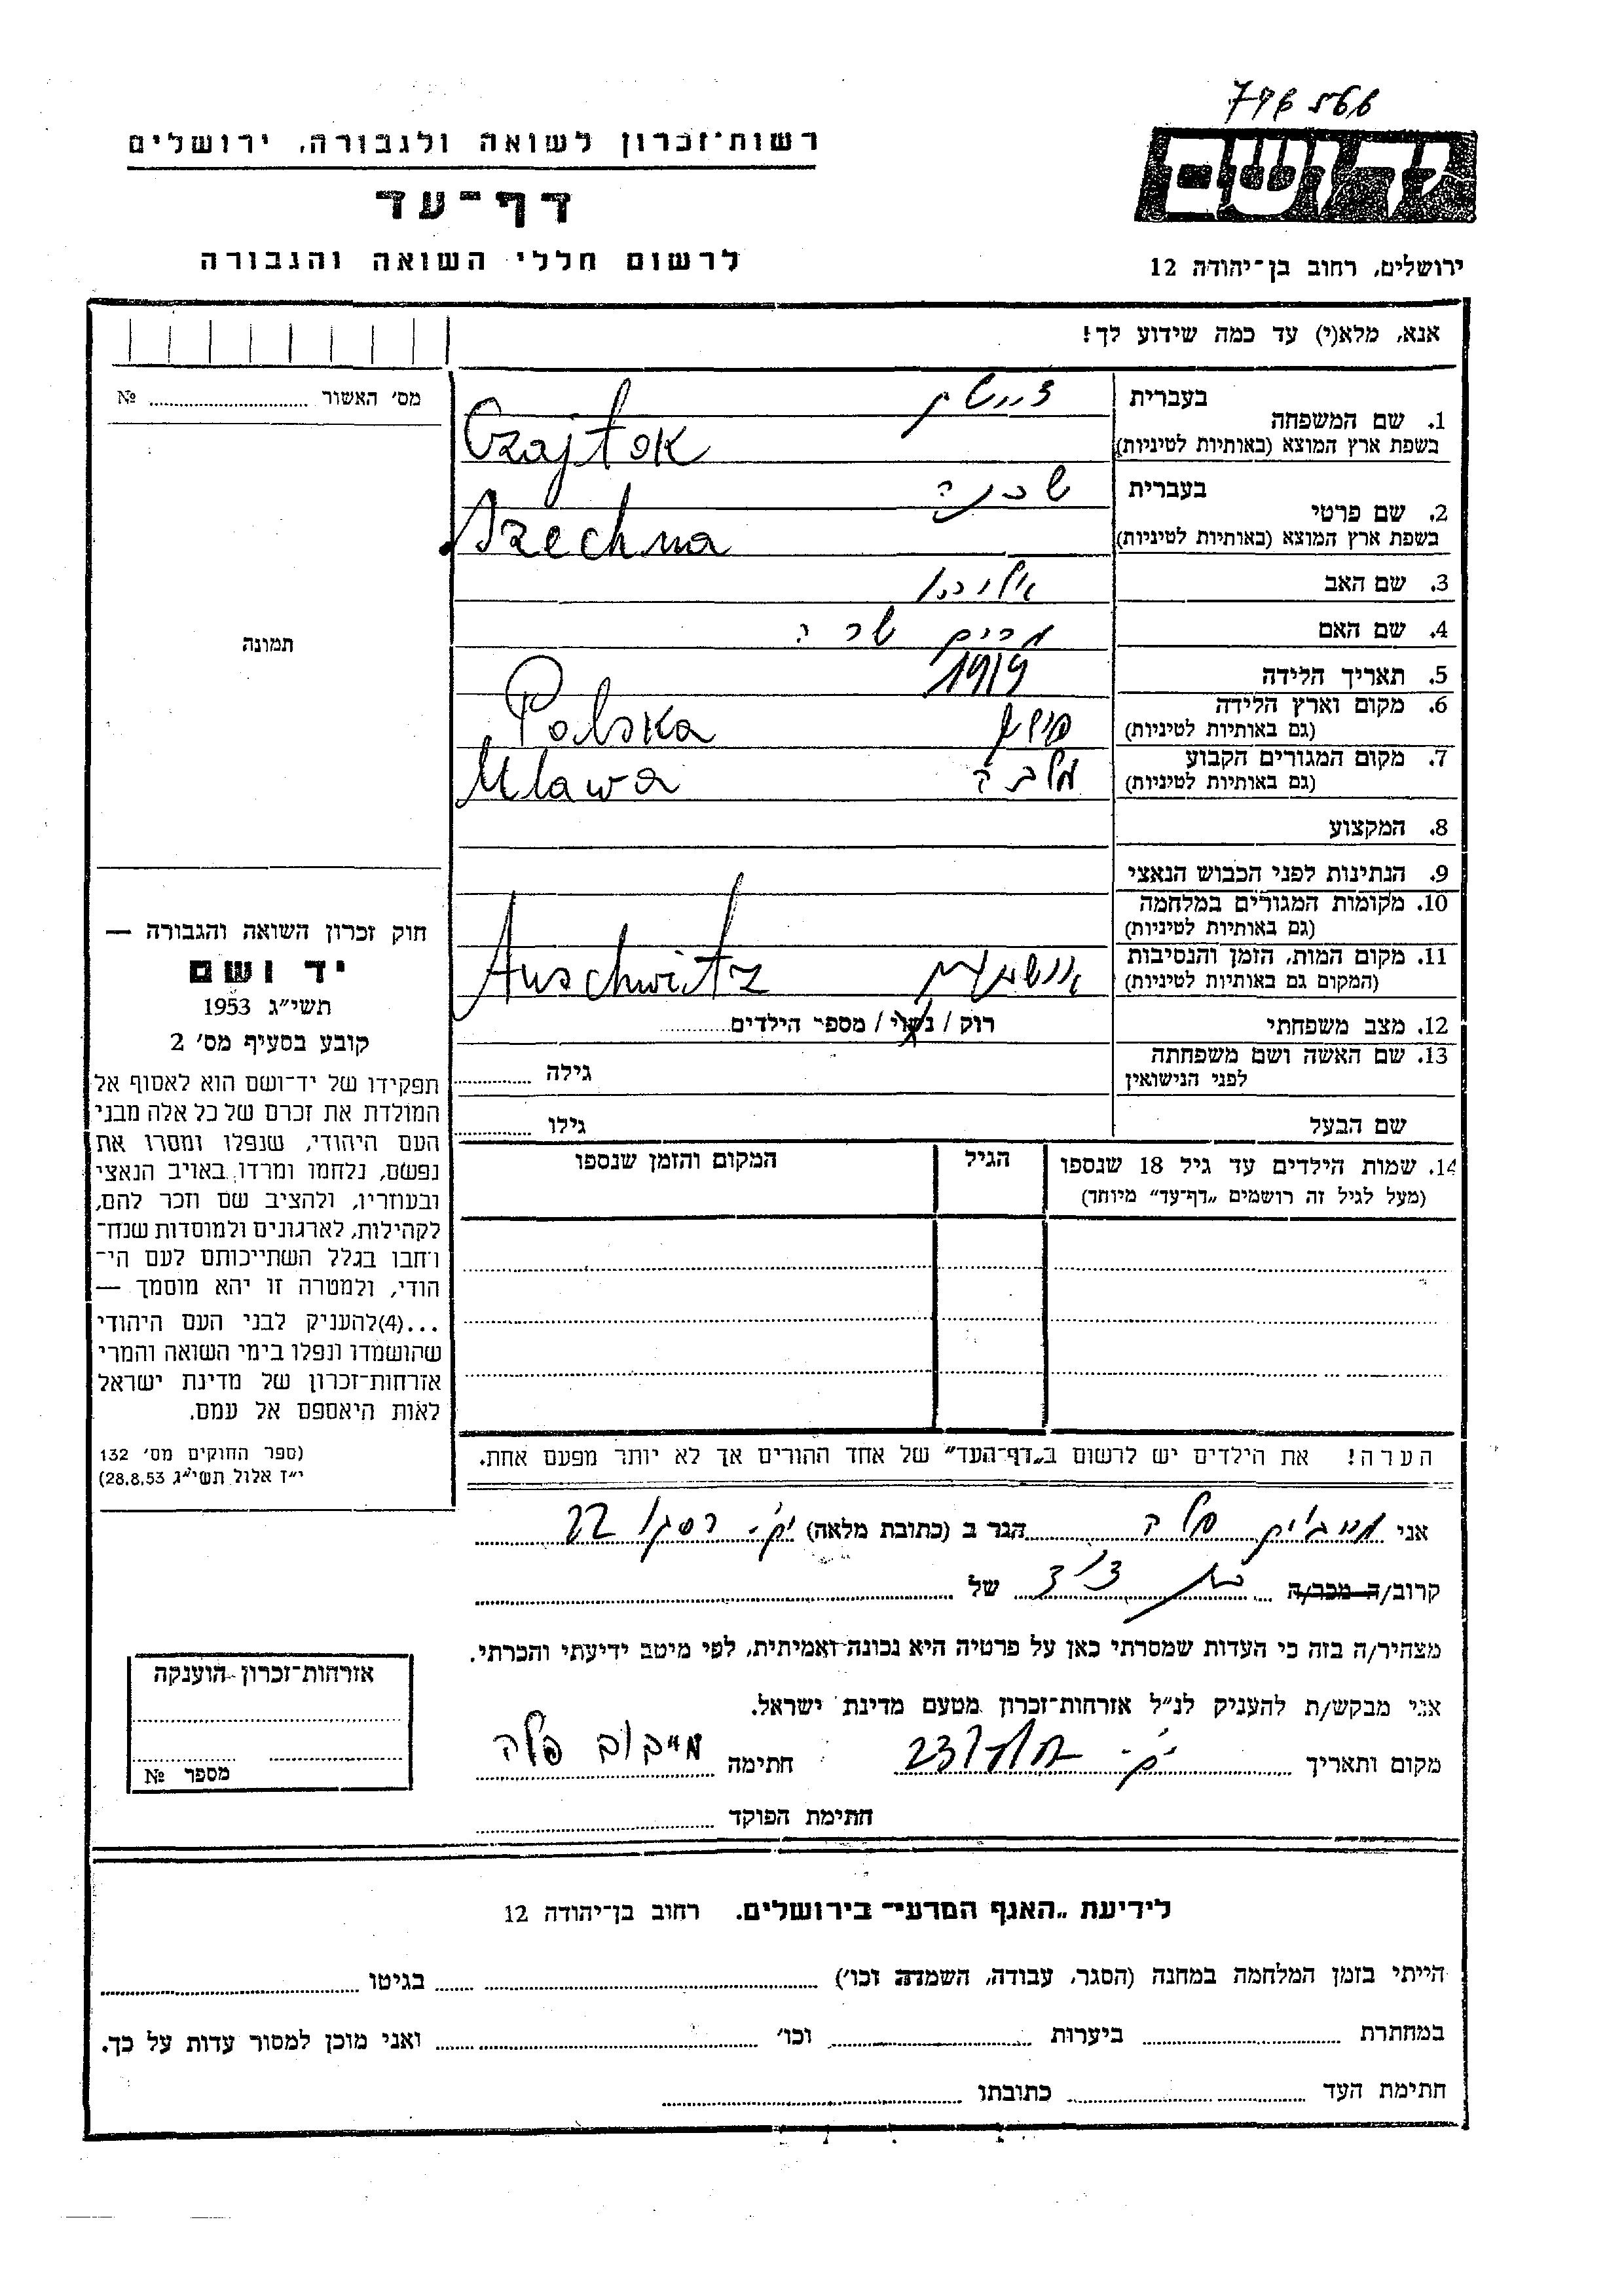 רשות־זכרון לשואה ולגבורה, ירושלים
דף־עד
לרשום חללי השואה והגבורה
ירושלים, רחוב בן־יהודה 12
אנא, מלא(י) עד כמה שידוע לך!
מס׳ האשור № 
1. שם המשפחה
בעברית
בשפת ארץ המוצא (באותיות לטיניות) Czajtok
2. שם פרטי
בעברית שכנה
בשפת ארץ המוצא (באותיות לטיניות) Szechna
3. שם האב
4. שם האם מרים שרה
5. תאריך הלידה 1919
6. מקום וארץ הלידה
(גם באותיות לטיניות) Polska
7. מקום המגורים הקבוע מלבה
(גם באותיות לטיניות) Mlawa
8. המקצוע
9. הנתינות לפני הכבוש הנאצי
10. מקומות המגורים במלחמה
(גם באותיות לטיניות)
11. מקום המות, הזמן והנסיבות
(המקום גם באותיות לטיניות) Auschwitz
12. מצב משפחתי רוק / נשוי / מספר הילדים
13. שם האשה ושם משפחתה
לפני הנישואין גילה
שם הבעל גילו
14. שמות הילדים עד גיל 18 שנספו הגיל המקום והזמן שנספו
(מעל לגיל זה רושמים „דף־עד״ מיוחד)
תמונה
חוק זכרון השואה והגבורה —
יד ושם
תשי״ג 1953
קובע בסעיף מס׳ 2
תפקידו של יד־ושם הוא לאסוף אל
המולדת את זכרם של כל אלה מבני
העם היהודי, שנפלו ומסרו את
נפשם, נלחמו ומרדו באויב הנאצי
ובעוזריו, ולהציב שם וזכר להם,
לקהילות, לארגונים ולמוסדות שנח־
רחבו בגלל השתייכותם לעם הי־
הודי, ולמטרה זו יהא מוסמך —
...(4)להעניק לבני העם היהודי
שהושמדו ונפלו בימי השואה והמרי
אזרחות־זכרון של מדינת ישראל
לאות היאספם אל עמם.
(ספר החוקים מס׳ 132
י״ז אלול תשי״ג 28.8.53)
הערה! את הילדים יש לרשום ב„דף־העד״ של אחד ההורים אך לא יותר מפעם אחת.
אני הגר ב (כתובת מלאה) 22
קרוב/ה מכר/ה של
מצהיר/ה בזה כי העדות שמסרתי כאן על פרטיה היא נכונה ואמיתית, לפי מיטב ידיעתי והכרתי.
אני מבקש/ת להעניק לנ״ל אזרחות־זכרון מטעם מדינת ישראל.
מקום ותאריך חתימה
חתימת הפוקד
אזרחות־זכרון הוענקה
מספר №
לידיעת „האגף המדעי״ בירושלים. רחוב בן־יהודה 12
הייתי בזמן המלחמה במחנה (הסגר, עבודה, השמדה וכו׳) בגיטו
במחתרת ביערות וכו׳ ואני מוכן למסור עדות על כך.
חתימת העד כתובתו